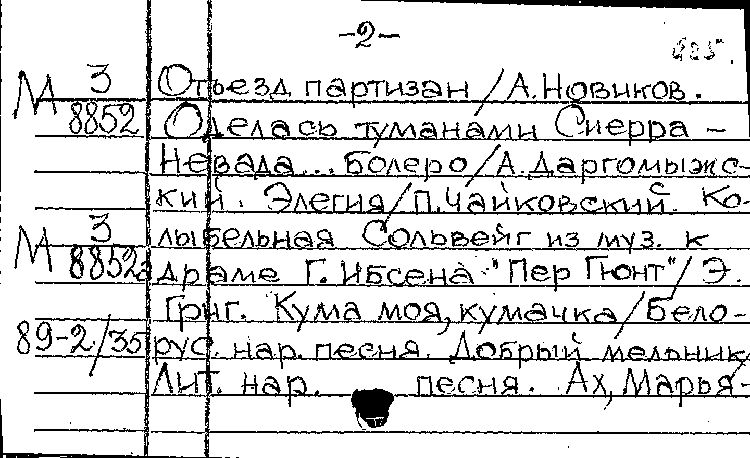 -2-
М 3 Отъезд партизан /А.Новиков.
8852 Оделась туманами Сиерра -
Невада... Болеро/А.Даргомыжс-
кий. Элегия/П.Чайковский. Ко-
М 3 лыбельная Сольвейг из муз. к
8852а драме Г. Ибсена "Пер Гюнт"/Э.
Григ. Кума моя, кумачка/Бело-
89-2/35 рус. нар. песня. Добрый мельник/
Лит. нар. песня. Ах, Марья-